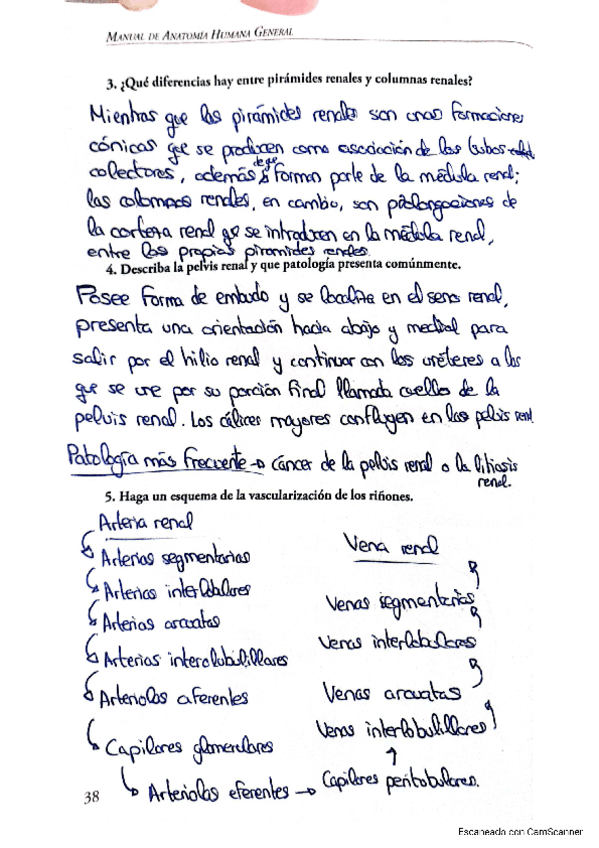 MANUAL DE ANATOMÍA HUMANA GENERAL
3. ¿Qué diferencias hay entre pirámides renales y columnas renales?
Mientras que las pirámides renales son unas formaciones
cónicas que se producen como asociación de los tubos
colectores, además de que forman parte de la médula renal;
las columnas renales, en cambio, son prolongaciones de
la corteza renal que se introducen en la médula renal,
entre las propias piramides renales.
4. Describa la pelvis renal y que patología presenta comúnmente.
Posee forma de embudo y se localiza en el seno renal,
presenta una orientación hacia abajo y medial para
salir por el hilio renal y continuar con los uréteres a los
que se une por su porción final llamada cuello de la
pelvis renal. Los cálices mayores confluyen en las pelvis renal
Patología más frecuente → cáncer de la pelvis renal o la litiasis
renal.
5. Haga un esquema de la vascularización de los riñones.
Arteria renal
Arterias segmentarias
Arterias interlobulares
Arterias arcuatas
Arterias interolubulillares
Arteriolas aferentes
Capilares glomerulares
Arteriolas eferentes → Capilares peritobulares.
Venas interlobulillares
Venas arcuatas
Venas interlobulares
Venas segmentarias
Vena renal
38
Escaneado con CamScanner